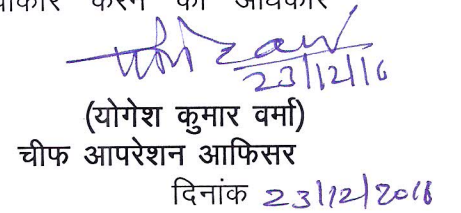 करने का अधिकार
23/12/16
(योगेश कुमार वर्मा)
चीफ आपरेशन आफिसर
दिनांक 23/12/2016